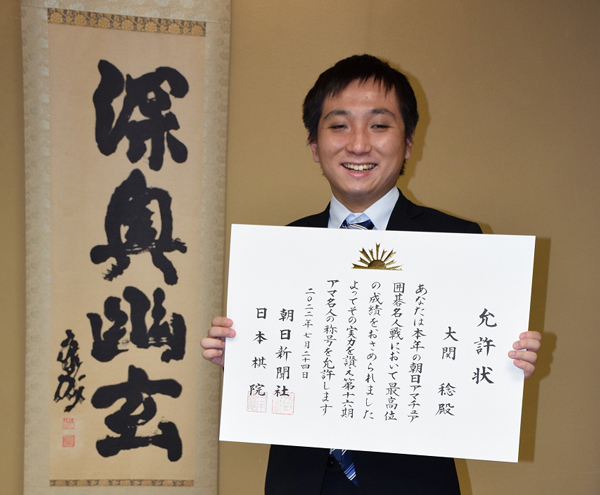 深奥幽玄
允許状
大関 稔殿
あなたは本年の朝日アマチュア
囲碁名人戦において最高位
の成績をおさめられました
よってその実力を讃え第十六期
アマ名人の称号を允許します
二〇二二年七月二十四日
朝日新聞社
日本棋院